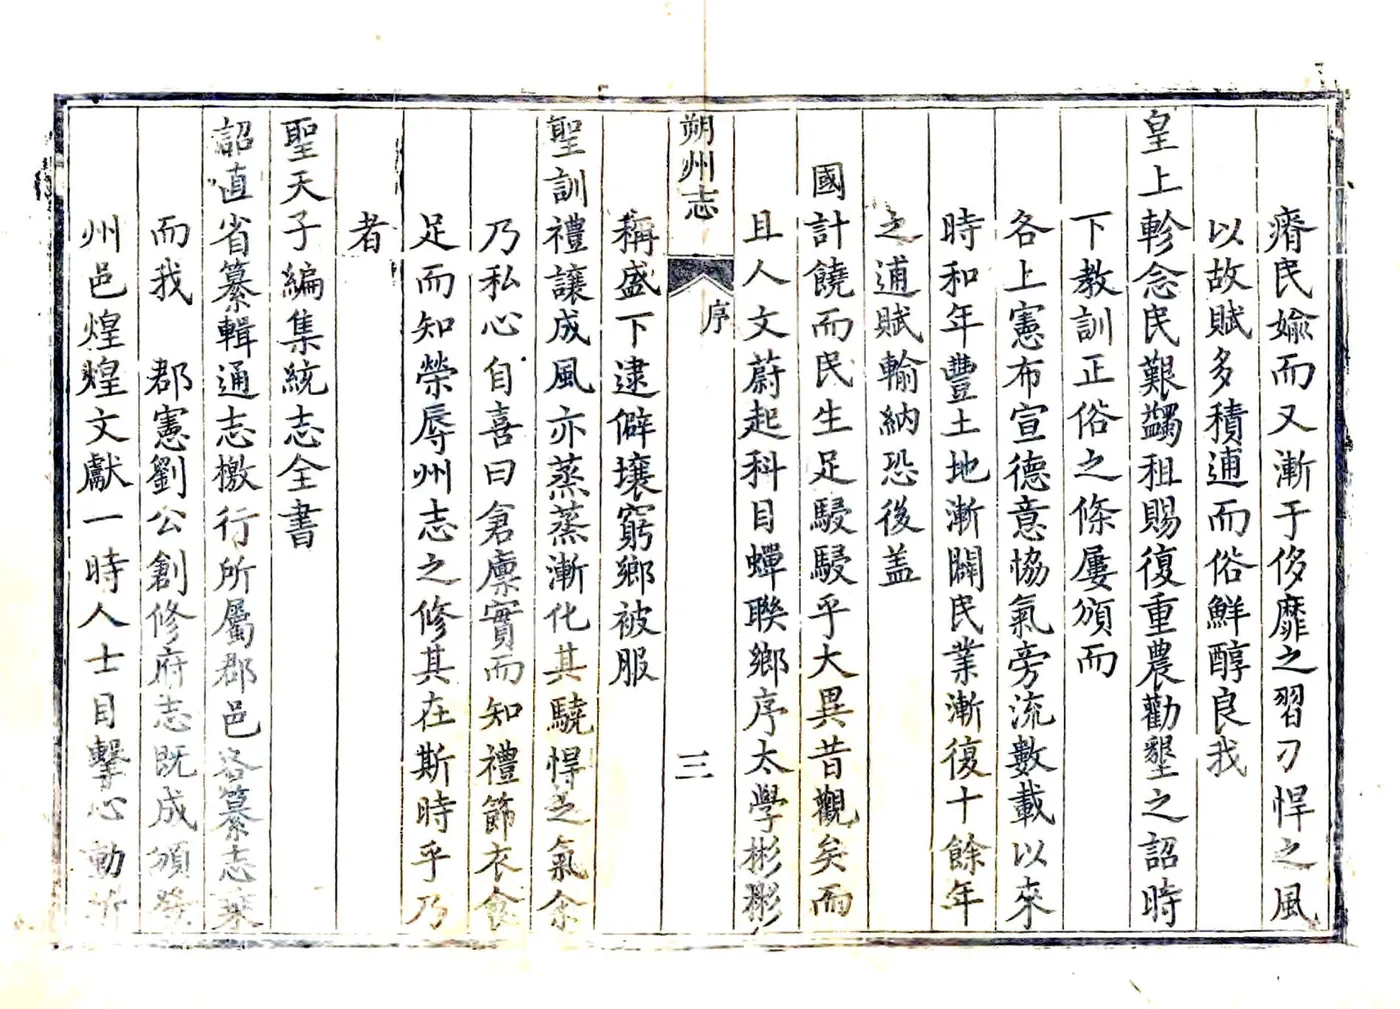 瘠民媮而又漸于侈靡之習刁悍之風
以故賦多積逋而俗鮮醇良我
皇上軫念民艱蠲租賜復重農勸墾之詔時
下教訓正俗之條屢頒而
各上憲布宣德意恊氣旁流數載以來
時和年豐土地漸闢民業漸復十餘年
之逋賦輸納恐後盖
國計饒而民生足駸駸乎大異昔觀矣而
且人文蔚起科目蟬聯鄉序太學彬彬
朔州志
序
三
稱盛下逮僻壤窮鄉被服
聖訓禮讓成風亦蒸蒸漸化其驍悍之氣余
乃私心自喜曰倉廪實而知禮節衣食
足而知榮辱州志之修其在斯時乎乃
者
聖天子編集統志全書
詔直省纂輯通志檄行所屬郡邑各纂志乘
而我 郡憲劉公創修府志既成頒發
州邑煌煌文獻一時人士目擊心動